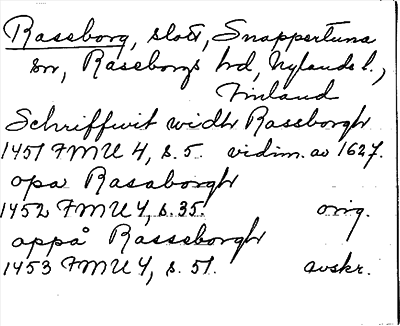 Raseborg, slott, Snappertuna
sn, Raseborgs hd, Nylands l.,
Finland
Schriffwit widh Rassborgh
1451 FMU 4, s. 5. vidim. av 1627.
opa Rasaborgh
1452 FMU 4, s. 35. orig.
appå Rasseborgh
1453 FMU 4, s. 51. avskr.